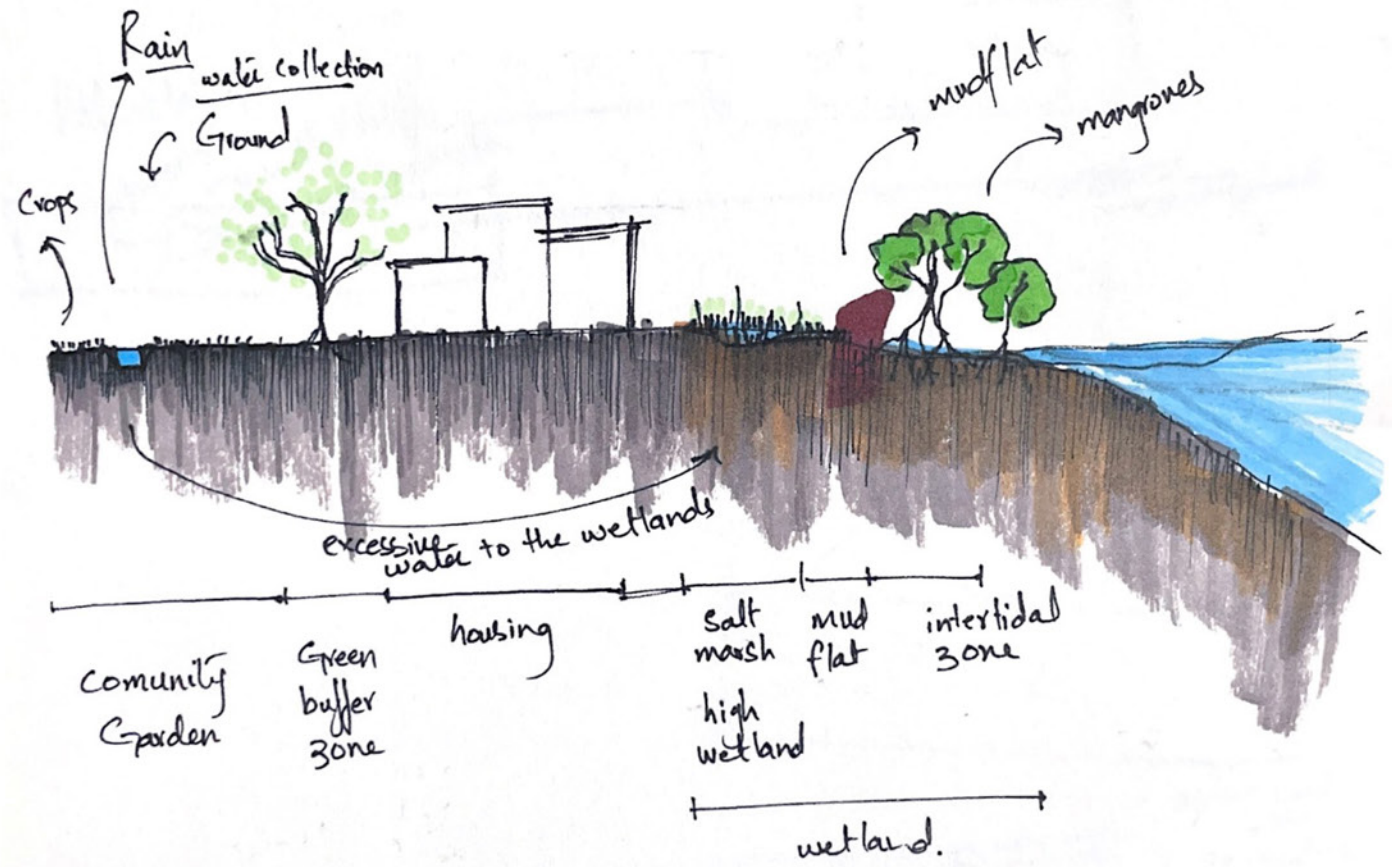 Rain
water collection
Ground
Crops
mudflat
mangroves
excessive
water to the wetlands
Comunity
Garden
Green
buffer
zone
housing
salt
marsh
high
wetland
mud
flat
intertidal
zone
wetland.